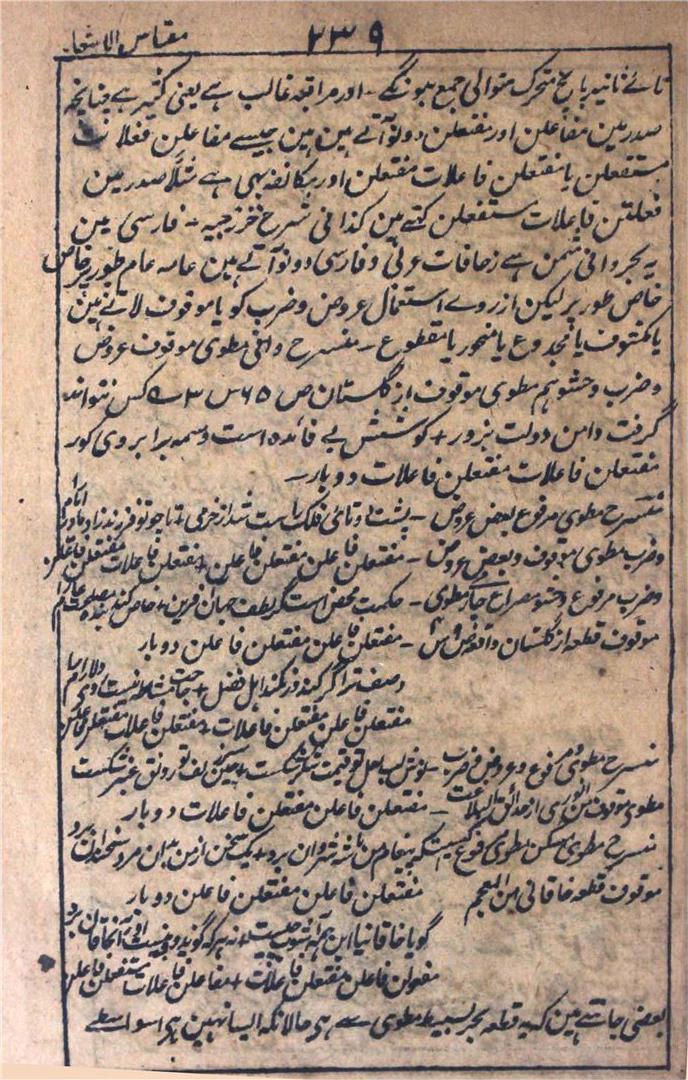 مقیاس الاشعار
۲۳۹
تائے ثانیہ پانچ متحرک متوالی جمع ہونگے۔ اور مراقبہ غالب ہے یعنی کثیر ہے چنانچہ
صدر مین مفاعلن اور مفتعلن دونو آتے ہین جیسے مفاعلن فعلات
مستفعلن یا مفتعلن فاعلات مفتعلن اور مکانفہ بھی ہے مثلاً صدر مین
فعلتن فاعلات مستفعلن کہتے ہین کذا فی شرح خزرجیہ۔ فارسی مین
یہ بحر وافی مثمن ہے زحافات عربی و فارسی دونو آتے ہین عامہ عام طور پر خاص
خاص طور پر لیکن از روے استعمال عروض و ضرب کو یا موقوف لاتے ہین
یا مکشوف یا مجدوع یا منحور یا مقطوع۔ منسرح وافی مطوی موقوف عروض
و ضرب و حشو ہم مطوی موقوف از گلستان ص ۶۵ س ۳ کس نتواند
گرفت دامن دولت بزور + کوشش بے فائدہ است وسمہ بر ابروی کور
مفتعلن فاعلات مفتعلن فاعلات دو بار۔
منسرح مطوی مرفوع بعض عروض۔ پشت دوتائی فلک راست شد از خرمی + تا چو تو فرزند زاد مادر ایام را
و ضرب مطوی موقوف و بعض عروض۔ مفتعلن فاعلن مفتعلن فاعلن + مفتعلن فاعلات مفتعلن فاعلن
و ضرب مرفوع و حشو مصراع مطوی۔ حکمت محض است گر لطف جہان آفرین + خاص کند بندہ مصلحت عام را
موقوف قطعہ از گلستان مفتعلن فاعلن مفتعلن فاعلن دو بار
وصف ترا گر کنند ور نکنند اہل فضل + حاجت مشاطہ نیست روی دلارام را
مفتعلن فاعلن مفتعلن فاعلات + مفتعلن فاعلات مفتعلن فاعلن
منسرح مطوی مرفوع و عروض و ضرب۔ نوش لب لعل تو قیمت شکر شکست + چین زلف تو رونق عنبر شکست
مطوی موقوف من انوری از حدائق البلاغت۔ مفتعلن فاعلن مفتعلن فاعلات دو بار
منسرح مطوی مسکن مطوی مرفوع کیست کہ پیغام من بہ شہر شروان برد + یک سخن از من بدان مرد سخندان برد
موقوف قطعہ خاقانی من المعجم مفتعلن فاعلن مفتعلن فاعلن دو بار
گویا خاقانیا این ہمہ آشوب چیست + نہ ہر کہ گوید دو بیت لقب خاقان برد
مفعولن فاعلن مفتعلن فاعلات + مفاعلن فاعلات مستفعلن فاعلن
بعضی جانتے ہین کہ یہ قطعہ بحر بسیط مطوی سے ہی حالانکہ ایسا نہین ہی اسواسطے